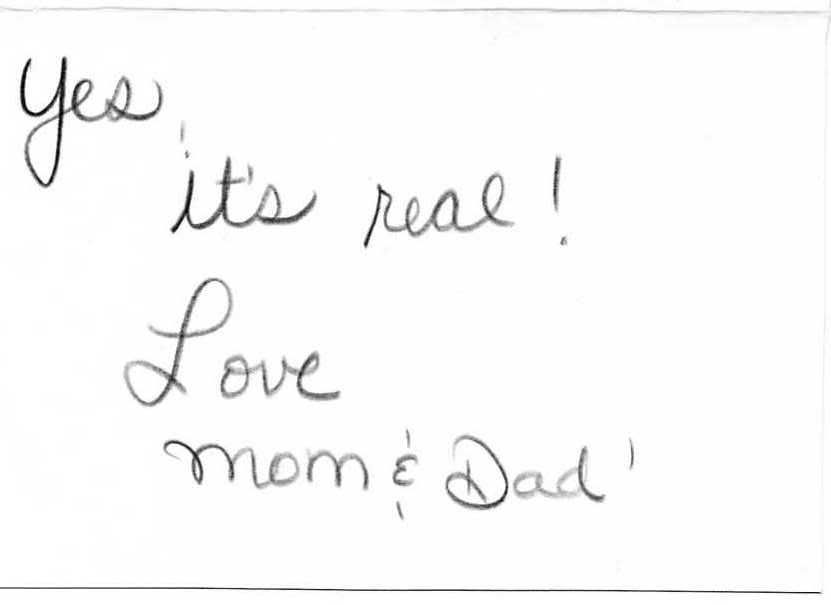 Yes,
it's real!
Love
mom & Dad'